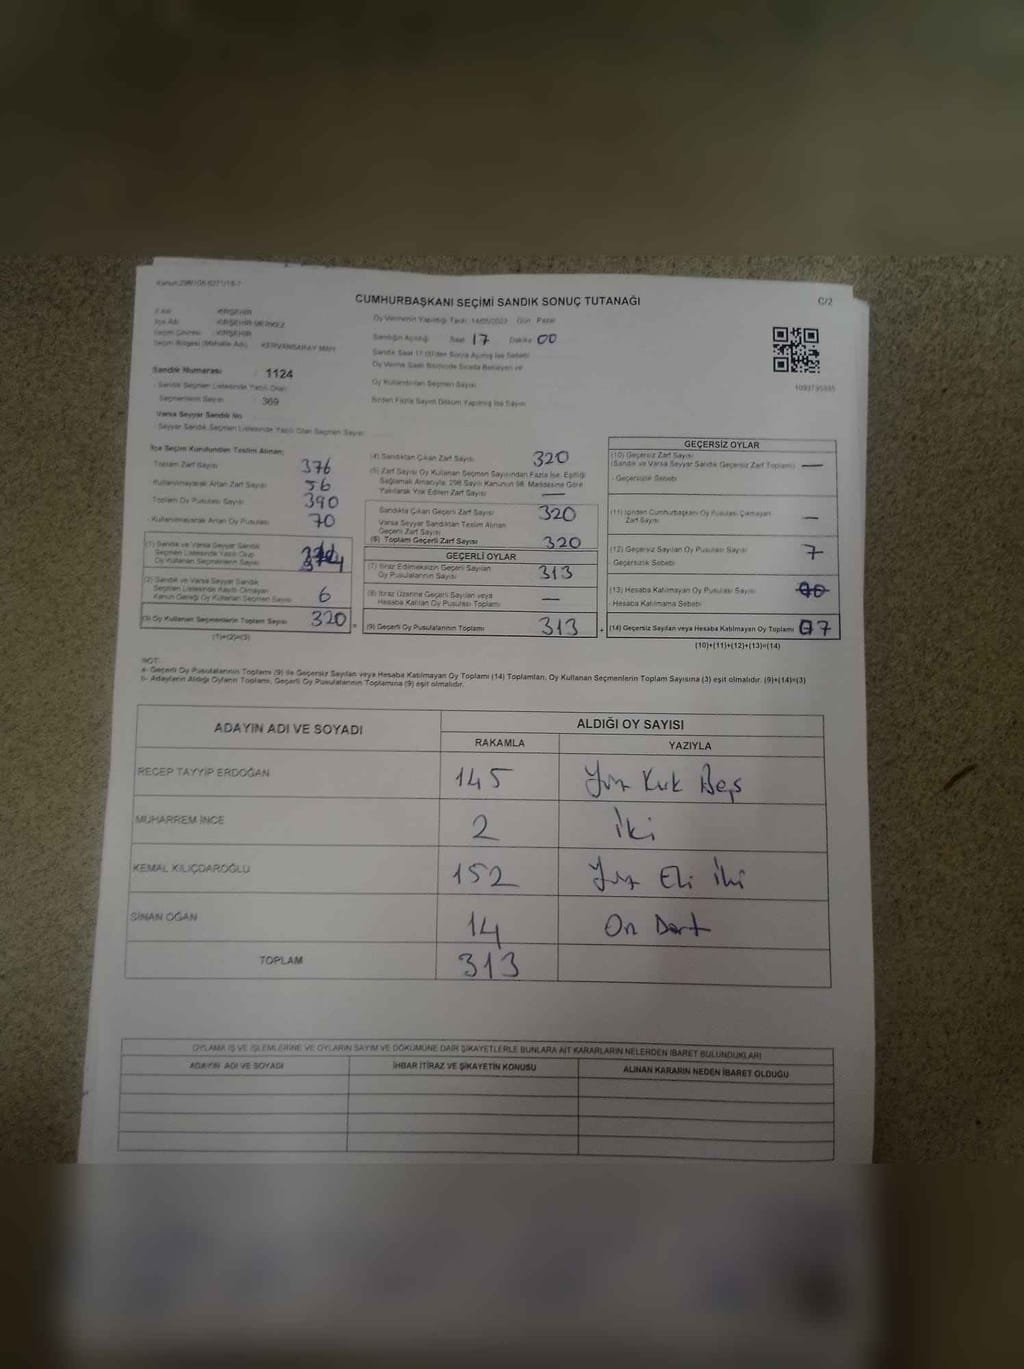 CUMHURBAŞKANI SEÇİMİ SANDIK SONUÇ TUTANAĞI
C/2
İl Adı KIRŞEHİR
İlçe Adı KIRŞEHİR MERKEZ
Seçim Çevresi KIRŞEHİR
Seçim Bölgesi (Mahalle Adı) KERVANSARAY MAH.
Sandık Numarası : 1124
- Sandık Seçmen Listesinde Yazılı Olan
Seçmenlerin Sayısı : 369
Varsa Seyyar Sandık No
- Seyyar Sandık Seçmen Listesinde Yazılı Olan Seçmen Sayısı
Oy Vermenin Yapıldığı Tarih: 14/05/2023 Gün: Pazar
Sandığın Açıldığı Saat 17 Dakika 00
Sandık Saat 17.00'den Sonra Açılmış İse Sebebi
Oy Verme Saati Bitiminde Sırada Bekleyen ve
Oy Kullandırılan Seçmen Sayısı
Birden Fazla Sayım Döküm Yapılmış İse Sayısı
1093795935
İlçe Seçim Kurulundan Teslim Alınan;
Toplam Zarf Sayısı 376
Kullanılmayarak Artan Zarf Sayısı 56
Toplam Oy Pusulası Sayısı 390
- Kullanılmayarak Artan Oy Pusulası 70
(1) Sandık ve Varsa Seyyar Sandık
Seçmen Listesinde Yazılı Olup
Oy Kullanan Seçmenlerin Sayısı
(2) Sandık ve Varsa Seyyar Sandık
Seçmen Listesinde Kayıtlı Olmayan
Kanun Gereği Oy Kullanan Seçmenlerin Sayısı 6
(3) Oy Kullanan Seçmenlerin Toplam Sayısı 320 =
(1)+(2)=(3)
(4) Sandıktan Çıkan Zarf Sayısı 320
(5) Zarf Sayısı Oy Kullanan Seçmen Sayısından Fazla İse; Eşitliği
Sağlamak Amacıyla, 298 Sayılı Kanunun 98. Maddesine Göre
Yakılarak Yok Edilen Zarf Sayısı —
Sandıkta Çıkan Geçerli Zarf Sayısı 320
Varsa Seyyar Sandıktan Teslim Alınan
Geçerli Zarf Sayısı
(6) Toplam Geçerli Zarf Sayısı 320
GEÇERLİ OYLAR
(7) İtiraz Edilmeksizin Geçerli Sayılan
Oy Pusulalarının Sayısı 313
(8) İtiraz Üzerine Geçerli Sayılan veya
Hesaba Katılan Oy Pusulası Toplamı —
(9) Geçerli Oy Pusulalarının Toplamı 313 +
GEÇERSİZ OYLAR
(10) Geçersiz Zarf Sayısı
(Sandık ve Varsa Seyyar Sandık Geçersiz Zarf Toplamı) —
- Geçersizlik Sebebi
(11) İçinden Cumhurbaşkanı Oy Pusulası Çıkmayan
Zarf Sayısı —
(12) Geçersiz Sayılan Oy Pusulası Sayısı 7
- Geçersizlik Sebebi
(13) Hesaba Katılmayan Oy Pusulası Sayısı
- Hesaba Katılmama Sebebi
(14) Geçersiz Sayılan veya Hesaba Katılmayan Oy Toplamı 7
(10)+(11)+(12)+(13)=(14)
NOT:
a- Geçerli Oy Pusulalarının Toplamı (9) ile Geçersiz Sayılan veya Hesaba Katılmayan Oy Toplamı (14) Toplamları, Oy Kullanan Seçmenlerin Toplam Sayısına (3) eşit olmalıdır. (9)+(14)=(3)
b- Adayların Aldığı Oyların Toplamı, Geçerli Oy Pusulalarının Toplamına (9) eşit olmalıdır.
ADAYIN ADI VE SOYADI
ALDIĞI OY SAYISI
RAKAMLA YAZIYLA
RECEP TAYYİP ERDOĞAN 145 Yüz Kırk Beş
MUHARREM İNCE 2 İki
KEMAL KILIÇDAROĞLU 152 Yüz Elli İki
SİNAN OĞAN 14 On Dört
TOPLAM 313
OYLAMA İŞ VE İŞLEMLERİNE VE OYLARIN SAYIM VE DÖKÜMÜNE DAİR ŞİKAYETLERLE BUNLARA AİT KARARLARIN NELERDEN İBARET BULUNDUKLARI
ADAYIN ADI VE SOYADI İHBAR İTİRAZ VE ŞİKAYETİN KONUSU ALINAN KARARIN NEDEN İBARET OLDUĞU